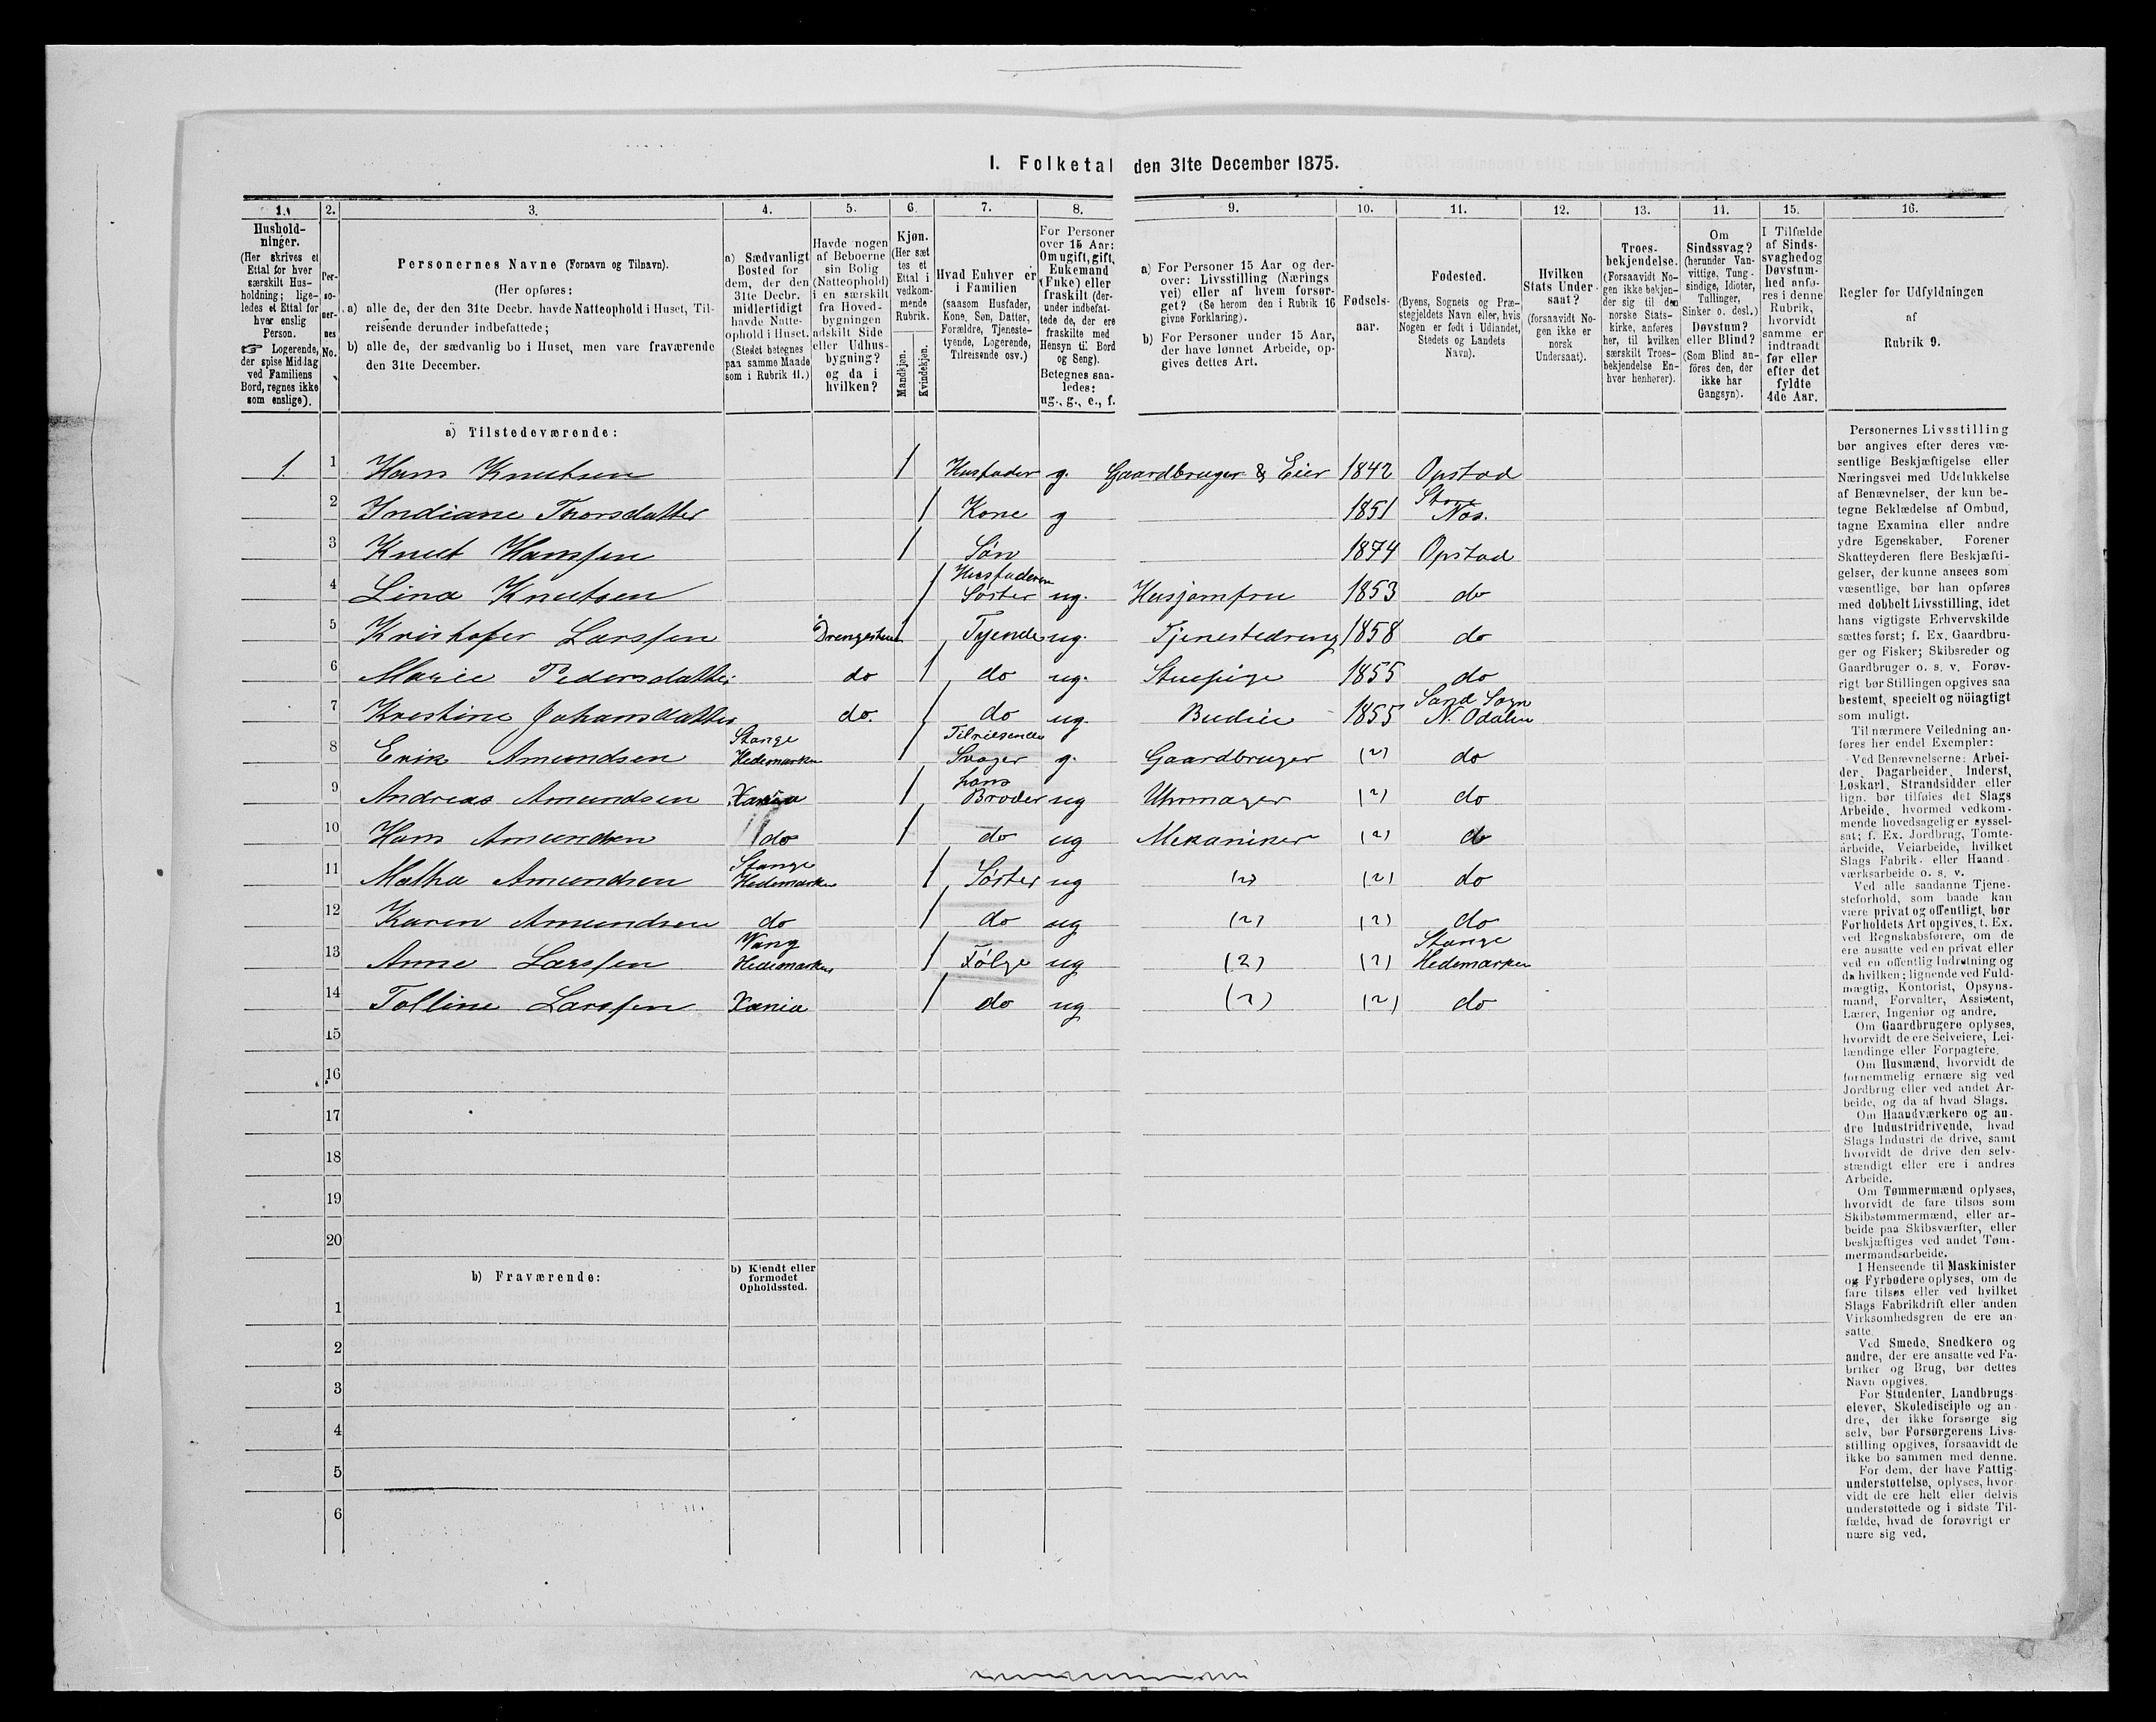 I. Folketal den 31te December 1875.
1. 2. 3. 4. 5. 6. 7. 8. 9. 10. 11. 12. 13. 11. 15. 16.
Hushold-
ninger.
(Her skrives et
Ettal for hver
særskilt Hus-
holdning; lige-
ledes et Ettal for
hver enslig
Person.
☞ Logerende,
der spise Middag
ved Familiens
Bord, regnes ikke
som enslige).
Per-
so-
ner-
nes
No.
Personernes Navne (Fornavn og Tilnavn).
(Her opføres:
a) alle de, der den 31te Decbr. havde Natteophold i Huset, Til-
reisende derunder indbefattede;
b) alle de, der sædvanlig bo i Huset, men vare fraværende
den 31te December.
a) Sædvanligt
Bosted for
dem, der den
31te Decbr.
midlertidigt
havde Natte-
ophold i Huset.
(Stedet betegnes
paa samme Maade
som i Rubrik 11.)
Havde nogen
af Beboerne
sin Bolig
(Natteophold)
i en særskilt
fra Hoved-
bygningen
adskilt Side
eller Udhus-
bygning?
og da i
hvilken?
Kjøn.
(Her sæt
tes et
Ettal i
vedkom-
mende
Rubrik.
Mandkjøn.
Kvindekjøn.
Hvad Enhver er
i Familien
(saasom Husfader,
Kone, Søn, Datter,
Forældre, Tjeneste-
tyende, Logerende,
Tilreisende osv.)
For Personer
over 15 Aar:
Om ugift, gift,
Enkemand
(Enke) eller
fraskilt (der-
under indbefat-
tede de, der ere
fraskilte med
Hensyn til Bord
og Seng).
Betegnes saa-
ledes:
ug., g., e., f.
a) For Personer 15 Aar og der-
over: Livsstilling (Nærings
vei) eller af hvem forsør-
get? (Se herom den i Rubrik 16
givne Forklaring).
b) For Personer under 15 Aar,
der have lønnet Arbeide, op-
gives dettes Art.
Fødsels-
aar.
Fødested.
(Byens, Sognets og Præ-
stegjeldets Navn eller, hvis
Nogen er født i Udlandet,
Stedets og Landets
Navn).
Hvilken
Stats Under-
saat?
(forsaavidt No-
gen ikke er
norsk
Undersaat).
Troes-
bekjendelse.
(Forsaavidt No-
gen ikke bekjen-
der sig til den
norske Stats-
kirke, anføres
her, til hvilken
særskilt Troes-
bekjendelse En-
hver henhører).
Om
Sindssvag?
(herunder Van-
vittige, Tung-
sindige, Idioter,
Tullinger,
Sinker o. desl.)
Døvstum?
eller Blind?
(Som Blind an-
föres den, der
ikke har
Gangsyn).
I Tilfælde
af Sinds-
svaghed og
Døvstum-
hed anfø-
res i denne
Rubrik,
hvorvidt
samme er
indtraadt
før eller
efter det
fyldte
4de Aar.
Regler for Udfyldningen
af
Rubrik 9.
a) Tilstedeværende:
1. 1 Hans Knutsen 1 Husfader g. Gaardbruger & Eier 1842 Opstad
2 Indiane Thorsdatter 1 Kone g 1851 Store Nos.
3 Knut Hanssen 1 Søn 1874 Opstad
4 Lina Knutsen 1 Husfaderen Søster ug. Husjomfru 1853 do
5 Kristofer Larssen Drengestuen 1 Tyende ug. Tjenestedreng 1858 do
6 Marie Pedersdatter do 1 do ug. Stuepige 1855 do
7 Kristine Johansdatter do. 1 do ug. Budeie 1855 Sand Sogn N. Odalen
8 Erik Amundsen Stange Hedemarken 1 Tilreisende Svoger g. Gaardbruger (?) do
9 Andreas Amundsen Xania 1 hans Broder ug Uhrmager (?) do
10 Hans Amundsen do 1 do ug Mekaniker (?) do
11 Matha Amundsen Stange Hedemarken 1 Søster ug (?) (?) do
12 Karen Amundsen do 1 do ug (?) (?) do
13 Anne Larssen Vang Hedemarken 1 Følge ug (?) (?) Stange Hedemarken
14 Tolline Larssen Xania 1 do ug (?) (?) do
15
16
17
18
19
20
b) Fraværende:
b) Kjendt eller
formodet
Opholdssted.
1
2
3
4
5
6
Personernes Livsstilling
bør angives efter deres væ-
sentlige Beskjæftigelse eller
Næringsvei med Udelukkelse
af Benævnelser, der kun be-
tegne Beklædelse af Ombud,
tagne Examina eller andre
ydre Egenskaber. Forener
Skatteyderen flere Beskjæfti-
gelser, der kunne ansees som
væsentlige, bør han opføres
med dobbelt Livsstilling, idet
hans vigtigste Erhvervskilde
sættes først; f. Ex. Gaardbru-
ger og Fisker; Skibsreder og
Gaardbruger o. s. v. Forøv-
rigt bør Stillingen opgives saa
bestemt, specielt og nöiagtigt
som muligt.
Til nærmere Veiledning an-
føres her endel Exempler:
Ved Benævnelserne: Arbei-
der, Dagarbeider, Inderst,
Løskarl, Strandsidder eller
lign. bør tilføies det Slags
Arbeide, hvormed vedkom-
mende hovedsagelig er syssel-
sat; f. Ex. Jordbrug, Tomte-
arbeide, Veiarbeide, hvilket
Slags Fabrik- eller Haand-
værksarbeide o. s. v.
Ved alle saadanne Tjene-
steforhold, som baade kan
være privat og offentligt, bør
Forholdets Art opgives, t. Ex.
ved Regnskabsførere, om de
ere ansatte ved en privat eller
ved en offentlig Indretning og
da hvilken; lignende ved Fuld-
mægtig, Kontorist, Opsyns-
mand, Forvalter, Assistent,
Lærer, Ingeniør og andre.
Om Gaardbrugere oplyses,
hvorvidt de ere Selveiere, Lei-
lændinge eller Forpagtere.
Om Husmænd, hvorvidt de
fornemmelig ernære sig ved
Jordbrug eller ved andet Ar-
beide, og da af hvad Slags.
Om Haandværkere og an-
dre Industridrivende, hvad
Slags Industri de drive, samt
hvorvidt de drive den selv-
stændigt eller ere i andres
Arbeide.
Om Tømmermænd oplyses,
hvorvidt de fare tilsøs som
Skibstømmermænd, eller ar-
beide paa Skibsværfter, eller
beskjæftiges ved andet Tøm-
mermandsarbeide.
I Henseende til Maskinister
og Fyrbødere oplyses, om de
fare tilsøs eller ved hvilket
Slags Fabrikdrift eller anden
Virksomhedsgren de ere an-
satte.
Ved Smede, Snedkere og
andre, der ere ansatte ved Fa-
briker og Brug, bør dettes
Navn opgives.
For Studenter, Landbrugs-
elever, Skoledisciple og an-
dre, der ikke forsørge sig
selv, bør Forsørgerens Livs-
stilling opgives, forsaavidt de
ikke bo sammen med denne.
For dem, der have Fattig-
understøttelse, oplyses, hvor-
vidt de ere helt eller delvis
understøttede og i sidste Til-
fælde, hvad de forøvrigt er
nære sig ved.